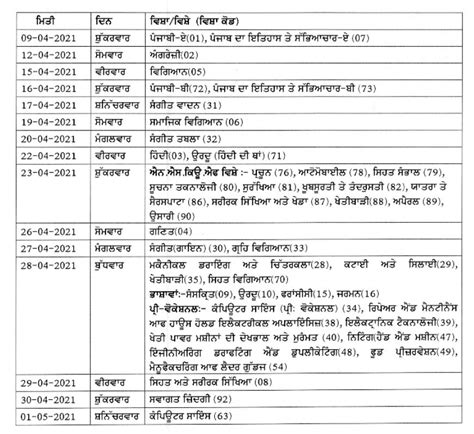 ਮਿਤੀ ਦਿਨ ਵਿਸ਼ਾ/ਵਿਸ਼ੇ (ਵਿਸ਼ਾ ਕੋਡ)
09-04-2021 ਸ਼ੁੱਕਰਵਾਰ ਪੰਜਾਬੀ-ਏ(01), ਪੰਜਾਬ ਦਾ ਇਤਿਹਾਸ ਤੇ ਸੱਭਿਆਚਾਰ-ਏ (07)
12-04-2021 ਸੋਮਵਾਰ ਅੰਗਰੇਜ਼ੀ(02)
15-04-2021 ਵੀਰਵਾਰ ਵਿਗਿਆਨ(05)
16-04-2021 ਸ਼ੁੱਕਰਵਾਰ ਪੰਜਾਬੀ-ਬੀ(72), ਪੰਜਾਬ ਦਾ ਇਤਿਹਾਸ ਤੇ ਸੱਭਿਆਚਾਰ-ਬੀ (73)
17-04-2021 ਸ਼ਨਿੱਚਰਵਾਰ ਸੰਗੀਤ ਵਾਦਨ (31)
19-04-2021 ਸੋਮਵਾਰ ਸਮਾਜਿਕ ਵਿਗਿਆਨ (06)
20-04-2021 ਮੰਗਲਵਾਰ ਸੰਗੀਤ ਤਬਲਾ (32)
22-04-2021 ਵੀਰਵਾਰ ਹਿੰਦੀ(03), ਉਰਦੂ (ਹਿੰਦੀ ਦੀ ਥਾਂ) (71)
23-04-2021 ਸ਼ੁੱਕਰਵਾਰ ਐਨ.ਐਸ.ਕਿਊ.ਐਫ ਵਿਸ਼ੇ :- ਪ੍ਰਚੂਨ (76), ਆਟੋਮੋਬਾਈਲ (78), ਸਿਹਤ ਸੰਭਾਲ (79),
ਸੂਚਨਾ ਤਕਨਾਲੋਜੀ (80), ਸੁਰੱਖਿਆ (81), ਖੂਬਸੂਰਤੀ ਤੇ ਤੰਦਰੁਸਤੀ (82), ਯਾਤਰਾ ਤੇ
ਸੈਰਸਪਾਟਾ (86), ਸਰੀਰਕ ਸਿੱਖਿਆ ਅਤੇ ਖੇਡਾਂ (87), ਖੇਤੀਬਾੜੀ (88), ਅਪੈਰਲ (89),
ਉਸਾਰੀ (90)
26-04-2021 ਸੋਮਵਾਰ ਗਣਿਤ(04)
27-04-2021 ਮੰਗਲਵਾਰ ਸੰਗੀਤ(ਗਾਇਨ) (30), ਗ੍ਰਹਿ ਵਿਗਿਆਨ(33)
28-04-2021 ਬੁੱਧਵਾਰ ਮਕੈਨੀਕਲ ਡਰਾਇੰਗ ਅਤੇ ਚਿੱਤਰਕਲਾ(28), ਕਟਾਈ ਅਤੇ ਸਿਲਾਈ(29),
ਖੇਤੀਬਾੜੀ(35), ਸਿਹਤ ਵਿਗਿਆਨ(70)
ਭਾਸ਼ਾਵਾਂ:-ਸੰਸਕ੍ਰਿਤ(09), ਉਰਦੂ(10), ਫਰਾਂਸੀਸੀ(15), ਜਰਮਨ(16)
ਪ੍ਰੀ-ਵੋਕੇਸ਼ਨਲ:- ਕੰਪਿਊਟਰ ਸਾਇੰਸ (ਪ੍ਰੀ: ਵੋਕੇਸ਼ਨਲ) (34), ਰਿਪੇਅਰ ਐਂਡ ਮੈਨਟੀਨੈਂਸ
ਆਫ ਹਾਊਸ ਹੋਲਡ ਇਲੈਕਟਰੀਕਲ ਅਪਲਾਇੰਸਿਜ਼(38), ਇਲੈਕਟ੍ਰਾਨਿਕ ਟੈਕਨਾਲੋਜੀ(39),
ਖੇਤੀ ਪਾਵਰ ਮਸ਼ੀਨਾਂ ਦੀ ਦੇਖਭਾਲ ਅਤੇ ਮੁਰੰਮਤ (40), ਨਿਟਿੰਗ(ਹੈਂਡ ਐਂਡ ਮਸ਼ੀਨ)(47),
ਇੰਜੀਨੀਅਰਿੰਗ ਡਰਾਫਟਿੰਗ ਐਂਡ ਡੁਪਲੀਕੇਟਿੰਗ(48), ਫੂਡ ਪ੍ਰੀਜ਼ਰਵੇਸ਼ਨ(49),
ਮੈਨੂਫੈਕਚਰਿੰਗ ਆਫ ਲੈਦਰ ਗੁੱਡਜ਼ (54)
29-04-2021 ਵੀਰਵਾਰ ਸਿਹਤ ਅਤੇ ਸਰੀਰਕ ਸਿੱਖਿਆ (08)
30-04-2021 ਸ਼ੁੱਕਰਵਾਰ ਸਵਾਗਤ ਜ਼ਿੰਦਗੀ (92)
01-05-2021 ਸ਼ਨਿੱਚਰਵਾਰ ਕੰਪਿਊਟਰ ਸਾਇੰਸ (63)